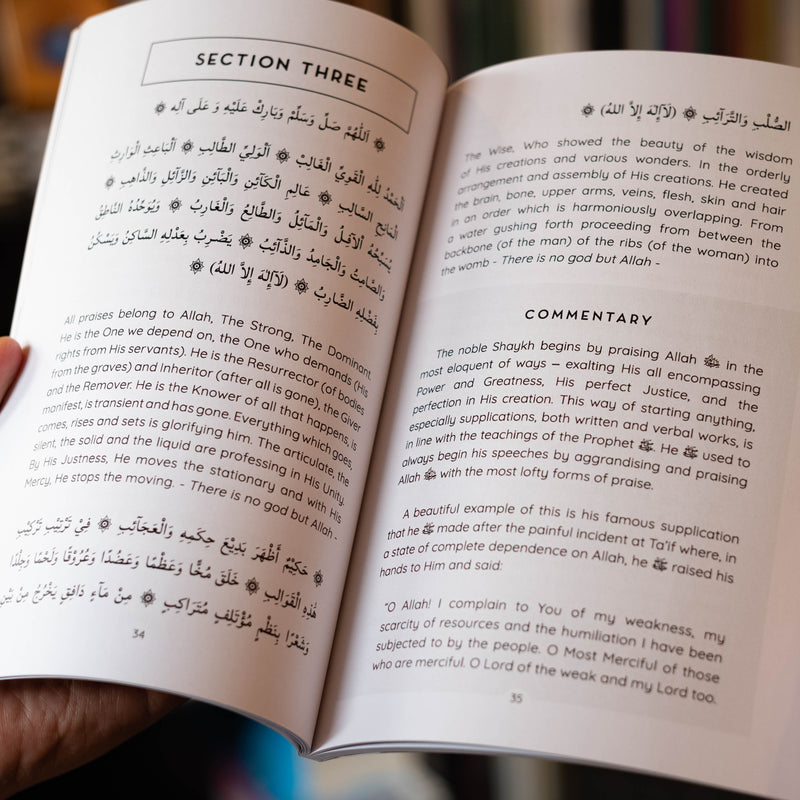 SECTION THREE
۞ اَللّٰهُمَّ صَلِّ وَسَلِّمْ وَبَارِكْ عَلَيْهِ وَ عَلَى آلِه ۞
اَلْحَمْدُ لِلّٰهِ الْقَوِيِّ الْغَالِبْ ۞ اَلْوَلِيِّ الطَّالِبْ ۞ اَلْبَاعِثِ الْوَارِثِ
الْمَانِحِ السَّالِبْ ۞ عَالِمِ الْكَآئِنِ وَالْبَآئِنِ وَالزَّآئِلِ وَالذَّاهِبْ ۞
يُسَبِّحُهُ الْآفِلُ وَالْمَآئِلُ وَالطَّالِعُ وَالْغَارِبُ ۞ وَيُوَحِّدُهُ النَّاطِقُ
وَالصَّامِتُ وَالْجَامِدُ وَالذَّآئِبُ ۞ يَضْرِبُ بِعَدْلِهِ السَّاكِنُ وَيَسْكُنُ
بِفَضْلِهِ الضَّارِبُ ۞ (لَآإِلٰهَ إِلاَّ اللهُ) ۞
All praises belong to Allah, The Strong, The Dominant.
He is the One we depend on, the One who demands (His
rights from His servants). He is the Resurrector (of bodies
from the graves) and Inheritor (after all is gone), the Giver
and the Remover. He is the Knower of all that happens, is
manifest, is transient and has gone. Everything which goes,
comes, rises and sets is glorifying him. The articulate, the
silent, the solid and the liquid are professing in His Unity.
By His Justness, He moves the stationary and with His
Mercy, He stops the moving. - There is no god but Allah -
۞ حَكِيْمٌ أَظْهَرَ بَدِيْعَ حِكَمِهِ وَالْعَجَآئِبْ ۞ فِيْ تَرْتِيْبِ تَرْكِيْبِ
هٰذِهِ الْقَوَالِبْ ۞ خَلَقَ مُخًّا وَعَظْمًا وَعَضُدًا وَعُرُوْقًا وَلَحْمًا وَجِلْدًا
وَشَعْرًا بِنَظْمٍ مُؤْتَلِفٍ مُتَرَاكِبْ ۞ مِنْ مَآءٍ دَافِقٍ يَخْرُجُ مِنْ بَيْنِ
34
الصُّلْبِ وَالتَّرَآئِبْ ۞ (لَآإِلٰهَ إِلاَّ اللهُ) ۞
The Wise, Who showed the beauty of the wisdom
of His creations and various wonders. In the orderly
arrangement and assembly of His creations. He created
the brain, bone, upper arms, veins, flesh, skin and hair
in an order which is harmoniously overlapping. From
a water gushing forth proceeding from between the
backbone (of the man) of the ribs (of the woman) into
the womb - There is no god but Allah -
COMMENTARY
The noble Shaykh begins by praising Allah ﷻ in the
most eloquent of ways – exalting His all encompassing
Power and Greatness, His perfect Justice, and the
perfection in His creation. This way of starting anything,
especially supplications, both written and verbal works, is
in line with the teachings of the Prophet ﷺ. He ﷺ used to
always begin his speeches by aggrandising and praising
Allah ﷻ with the most lofty forms of praise.
A beautiful example of this is his famous supplication
that he ﷺ made after the painful incident at Ta'if where, in
a state of complete dependence on Allah, he ﷺ raised his
hands to Him and said:
“O Allah! I complain to You of my weakness, my
scarcity of resources and the humiliation I have been
subjected to by the people. O Most Merciful of those
who are merciful. O Lord of the weak and my Lord too.
35